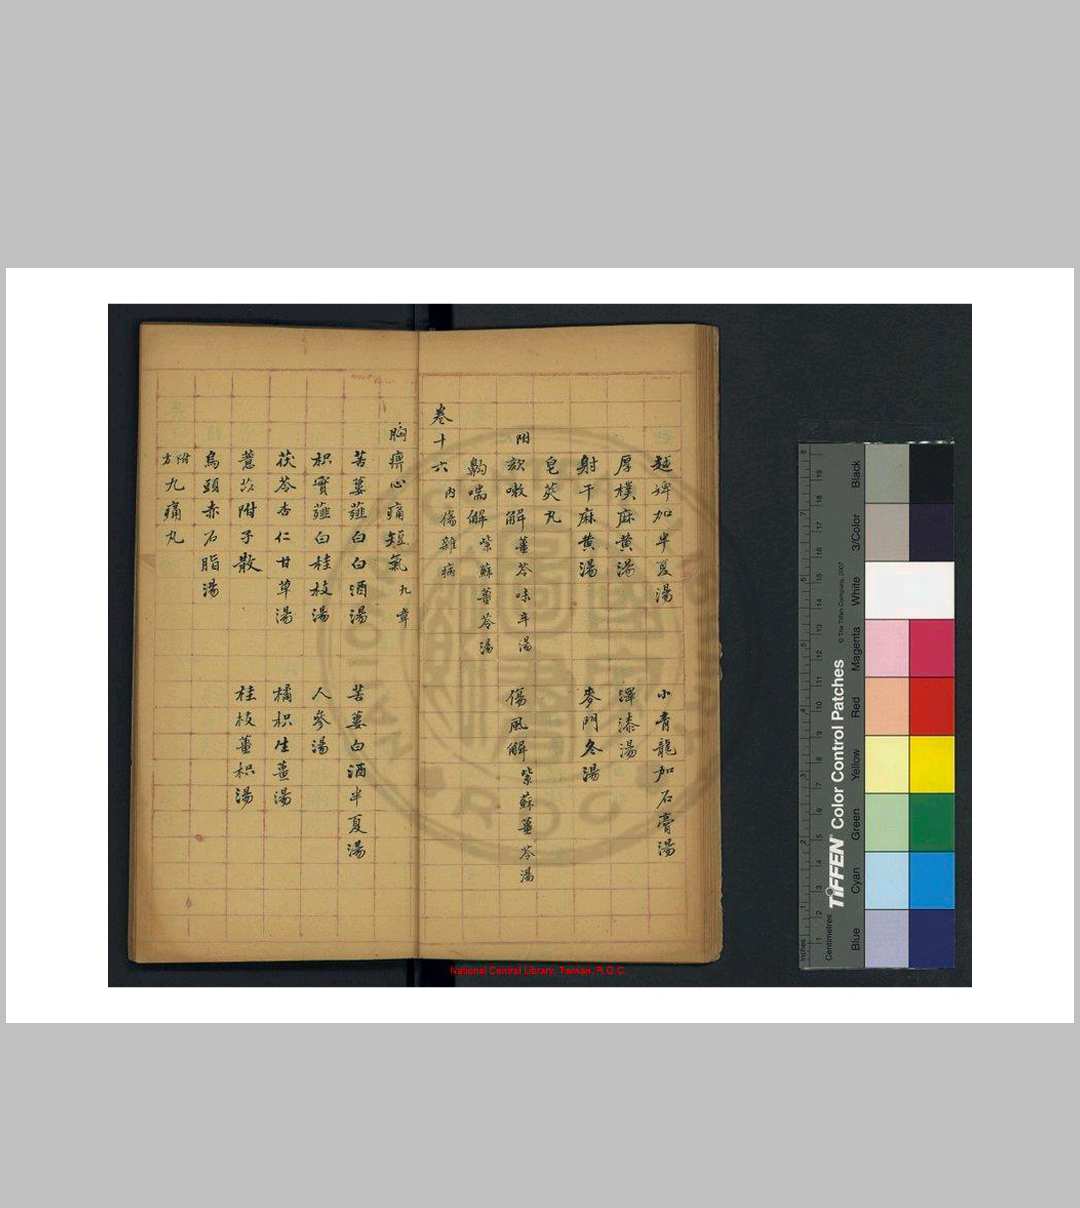 越婢加半夏湯　小青龍加石膏湯
厚樸麻黃湯　澤漆湯
射干麻黃湯　麥門冬湯
皂莢丸
附
欬嗽解 薑苓味辛湯　傷風解 紫蘇薑苓湯
齁喘解 紫蘇薑苓湯
卷十六 內傷雜病
胸痹心痛短氣 九章
苦蔞薤白白酒湯　苦蔞白酒半夏湯
枳實薤白桂枝湯　人參湯
茯苓杏仁甘草湯　橘枳生薑湯
薏苡附子散　桂枝薑枳湯
烏頭赤石脂湯
附方 九痛丸
National Central Library, Taiwan, R.O.C.
TIFFEN Color Control Patches
© The Tiffen Company, 2007
Inches
Centimetres
Blue
Cyan
Green
Yellow
Red
Magenta
White
3/Color
Black